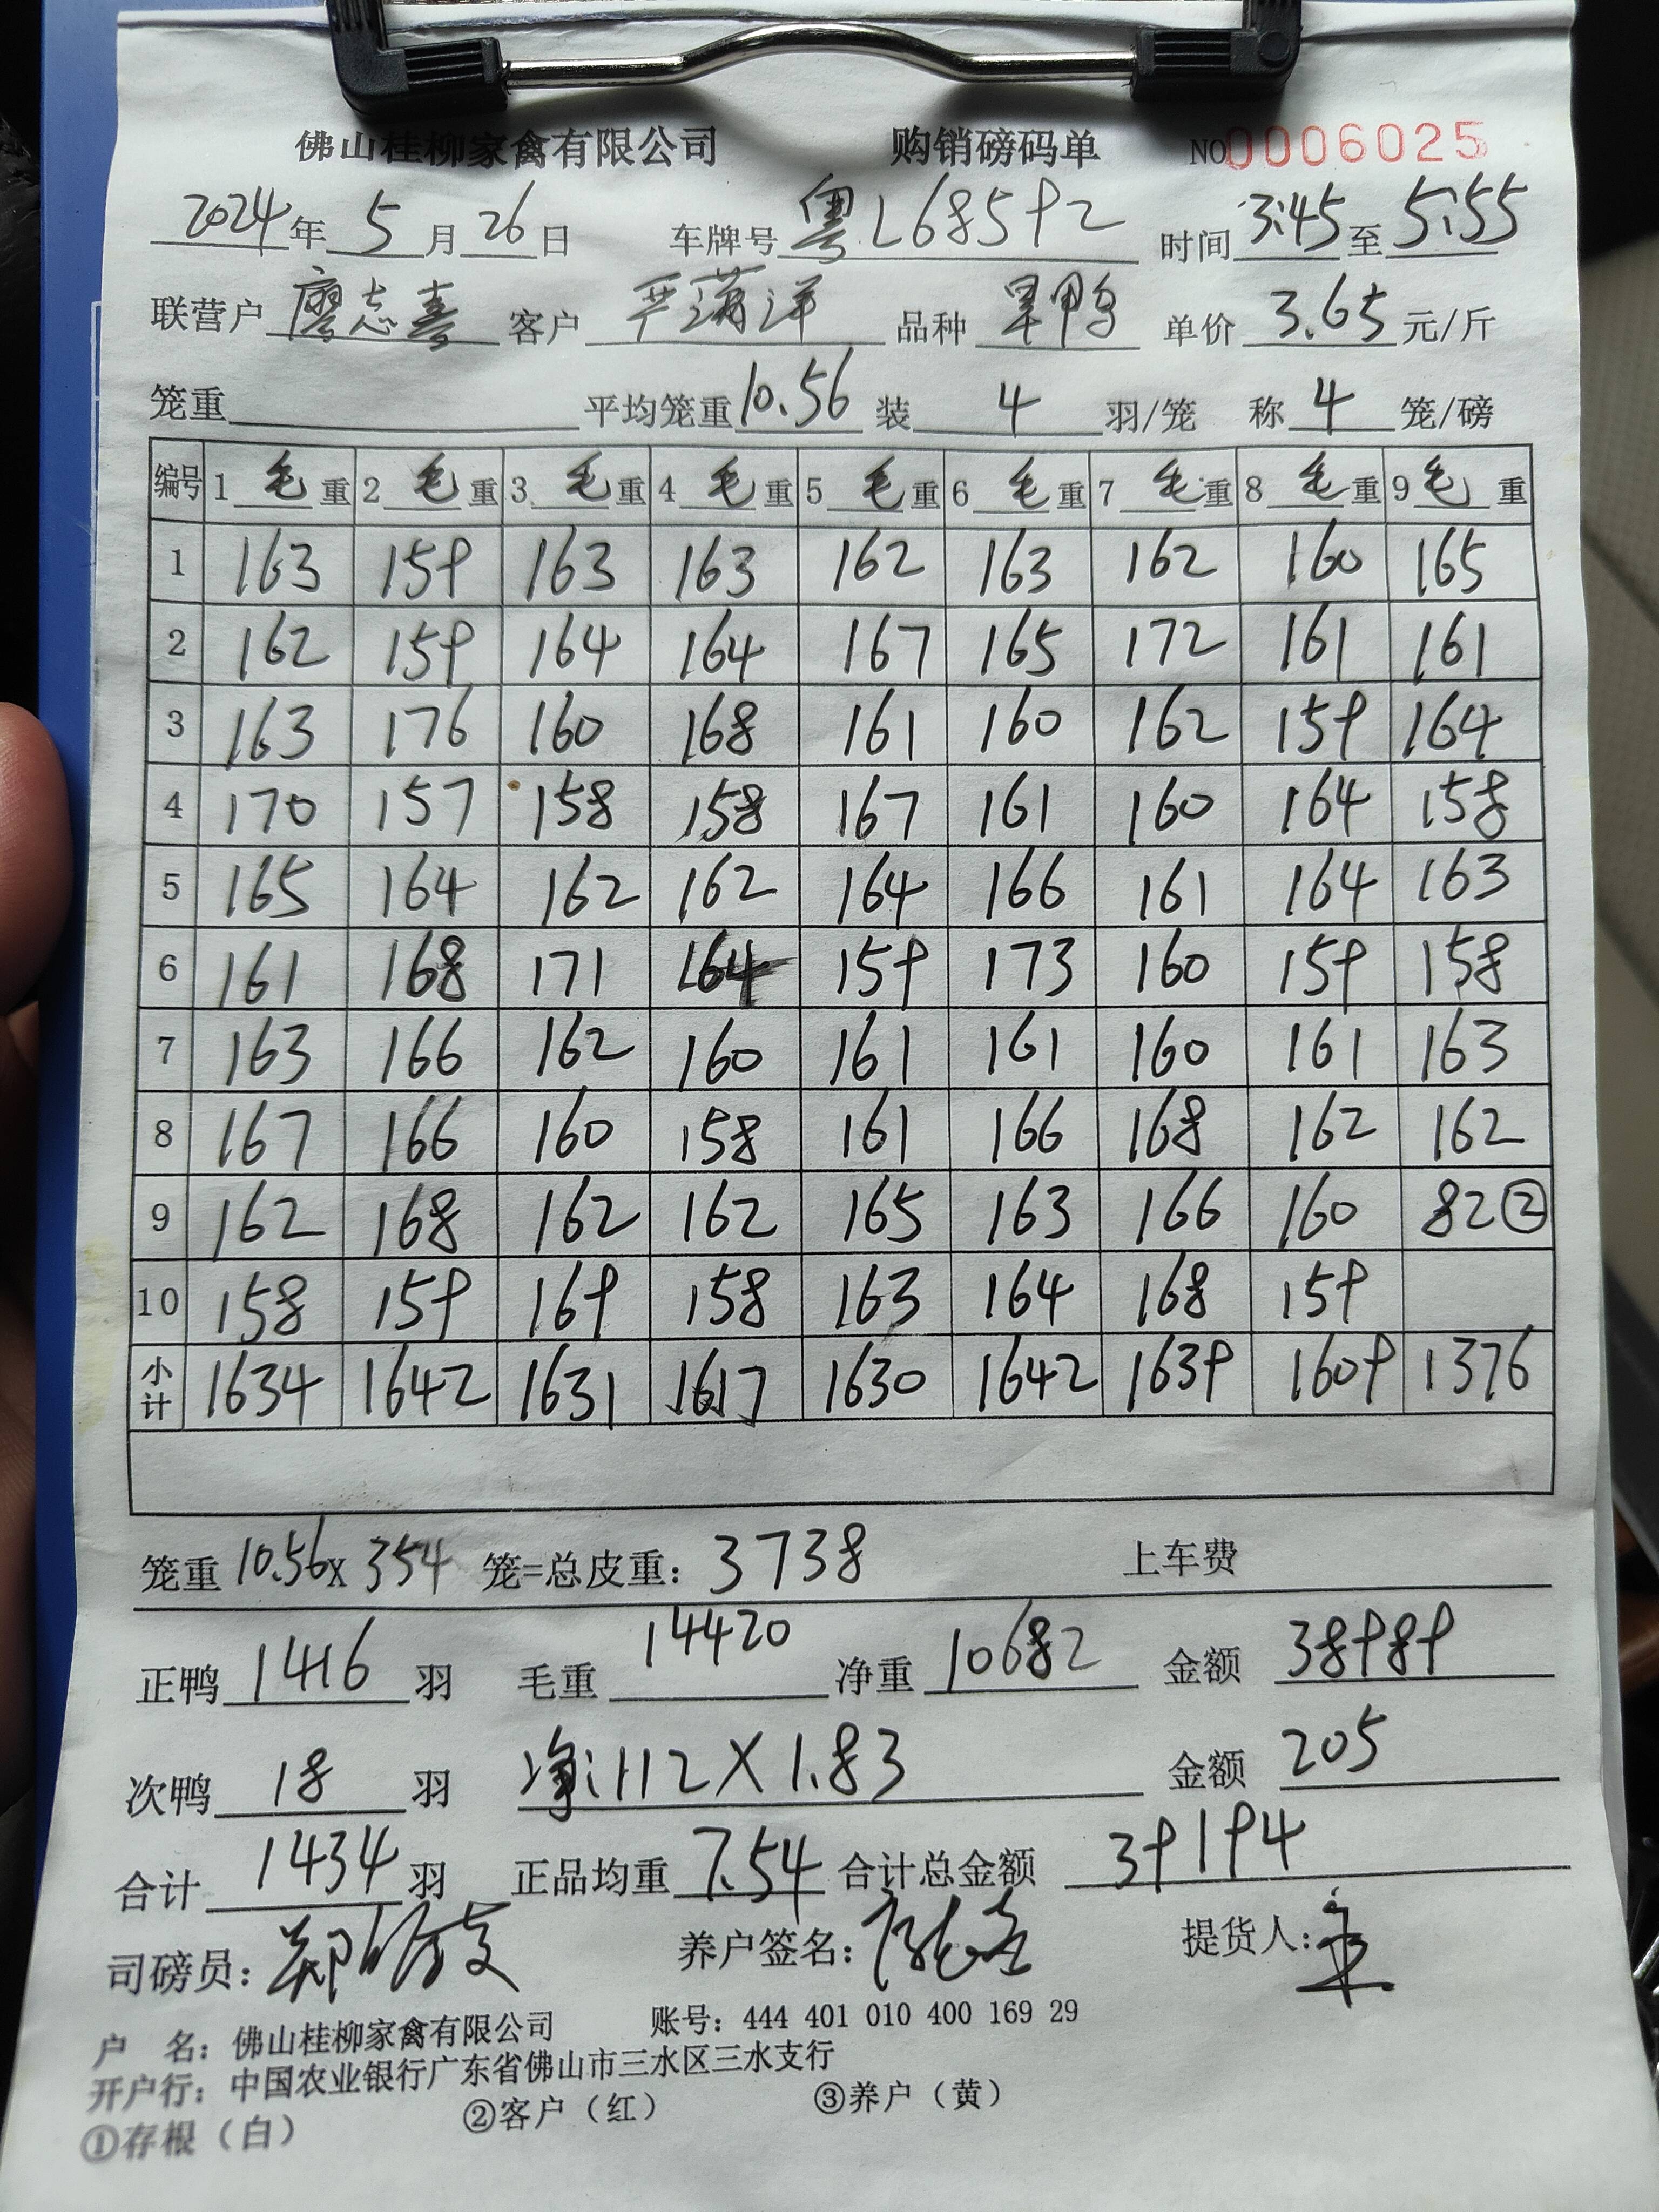 佛山桂柳家禽有限公司 购销磅码单 NO0006025
2024年5月26日 车牌号 粤L68592 时间 3:45至5:55
联营户 廖志喜 客户 严满洋 品种 旱鸭 单价 3.65元/斤
笼重 平均笼重10.56 装 4 羽/笼 称 4 笼/磅
编号 1 毛重 2 毛重 3 毛重 4 毛重 5 毛重 6 毛重 7 毛重 8 毛重 9 毛重
1 163 159 163 163 162 163 162 160 165
2 162 159 164 164 167 165 172 161 161
3 163 176 160 168 161 160 162 159 164
4 170 157 158 158 167 161 160 164 158
5 165 164 162 162 164 166 161 164 163
6 161 168 171 164 159 173 160 159 158
7 163 166 162 160 161 161 160 161 163
8 167 166 160 158 161 166 168 162 162
9 162 168 162 162 165 163 166 160 82②
10 158 159 169 158 163 164 168 159
小计 1634 1642 1631 1617 1630 1642 1639 1609 1376
笼重10.56x354 笼=总皮重：3738 上车费
正鸭 1416 羽 毛重 14420 净重 10682 金额 38989
次鸭 18 羽 净:112X1.83 金额 205
合计 1434 羽 正品均重 7.54 合计总金额 39194
司磅员： 养户签名： 提货人：
户 名：佛山桂柳家禽有限公司 账号：444 401 010 400 169 29
开户行：中国农业银行广东省佛山市三水区三水支行
①存根（白） ②客户（红） ③养户（黄）